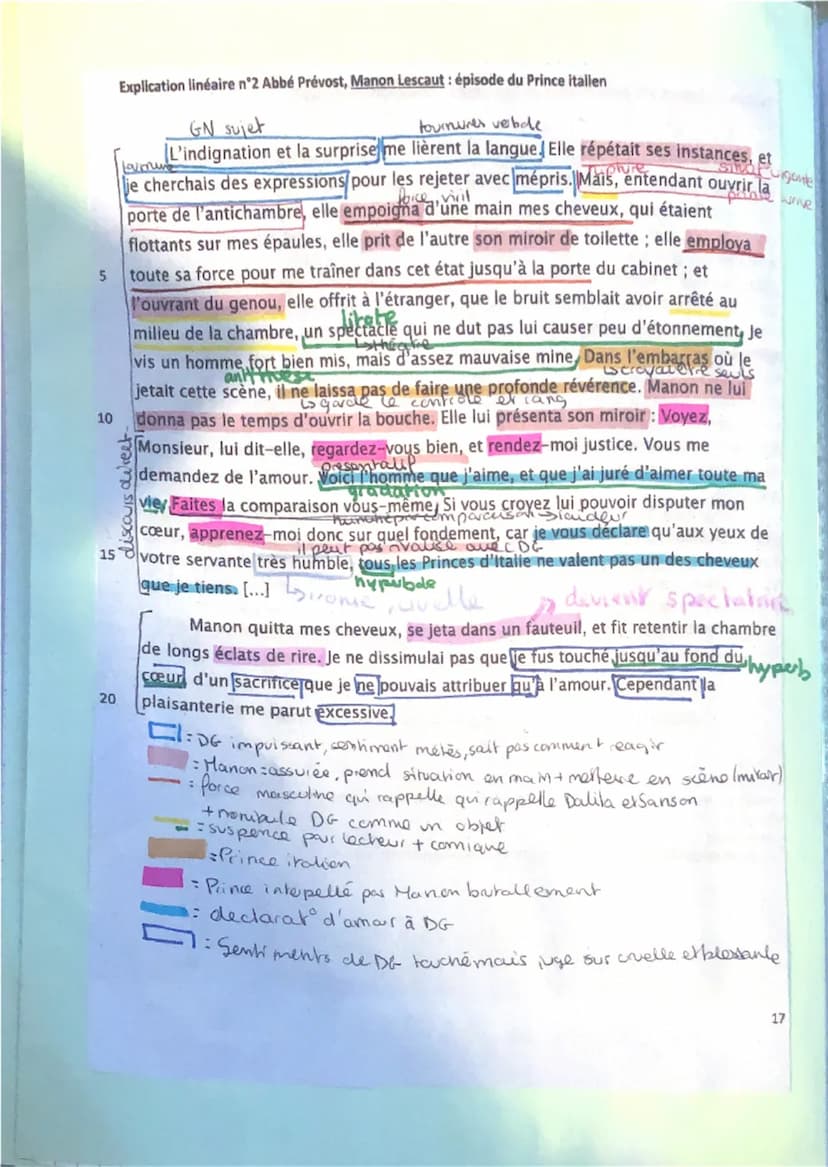 Explication linéaire n°2 Abbé Prévost, Manon Lescaut : épisode du Prince italien
GN sujet
L'indignation et la surprise me lièrent la langue. Elle répétait ses instances, et
je cherchais des expressions pour les rejeter avec mépris. Mais, entendant ouvrir la
force viril
porte de l'antichambre, elle empoigna d'une main mes cheveux, qui étaient
flottants sur mes épaules, elle prit de l'autre son miroir de toilette ; elle employa
5 toute sa force pour me traîner dans cet état jusqu'à la porte du cabinet ; et
l'ouvrant du genou, elle offrit à l'étranger, que le bruit semblait avoir arrêté au
litote
milieu de la chambre, un spectacle qui ne dut pas lui causer peu d'étonnement. Je
↳ théâtre
vis un homme fort bien mis, mais d'assez mauvaise mine. Dans l'embarras où le
antithèse
jetait cette scène, il ne laissa pas de faire une profonde révérence. Manon ne lui
↳ garde le contrôle et rang
10 donna pas le temps d'ouvrir la bouche. Elle lui présenta son miroir : Voyez,
discours direct
Monsieur, lui dit-elle, regardez-vous bien, et rendez-moi justice. Vous me
présentatif
demandez de l'amour. Voici l'homme que j'aime, et que j'ai juré d'aimer toute ma
gradation
vie. Faites la comparaison vous-même. Si vous croyez lui pouvoir disputer mon
cœur, apprenez-moi donc sur quel fondement, car je vous déclare qu'aux yeux de
il peut pas rivaliser avec DG
15 votre servante très humble, tous les Princes d'Italie ne valent pas un des cheveux
hyperbole
que je tiens. [...]
↳ ironie, cruelle
→ devient spectatrice
Manon quitta mes cheveux, se jeta dans un fauteuil, et fit retentir la chambre
de longs éclats de rire. Je ne dissimulai pas que je fus touché jusqu'au fond du
hyperb
cœur d'un sacrifice que je ne pouvais attribuer qu'à l'amour. Cependant la
20 plaisanterie me parut excessive.
= DG impuissant, sentiment mêlés, sait pas comment réagir
= Manon : assurée, prend situation en main + metteuse en scène (miroir)
= force masculine qui rappelle qui rappelle Dalila et Sanson
+ manipule DG comme un objet
= suspence pour lecteur + comique
= Prince italien
= Prince interpellé par Manon brutallement
= declarat° d'amour à DG
: Sentiments de DG touché mais juge sur cruelle et blessante
17